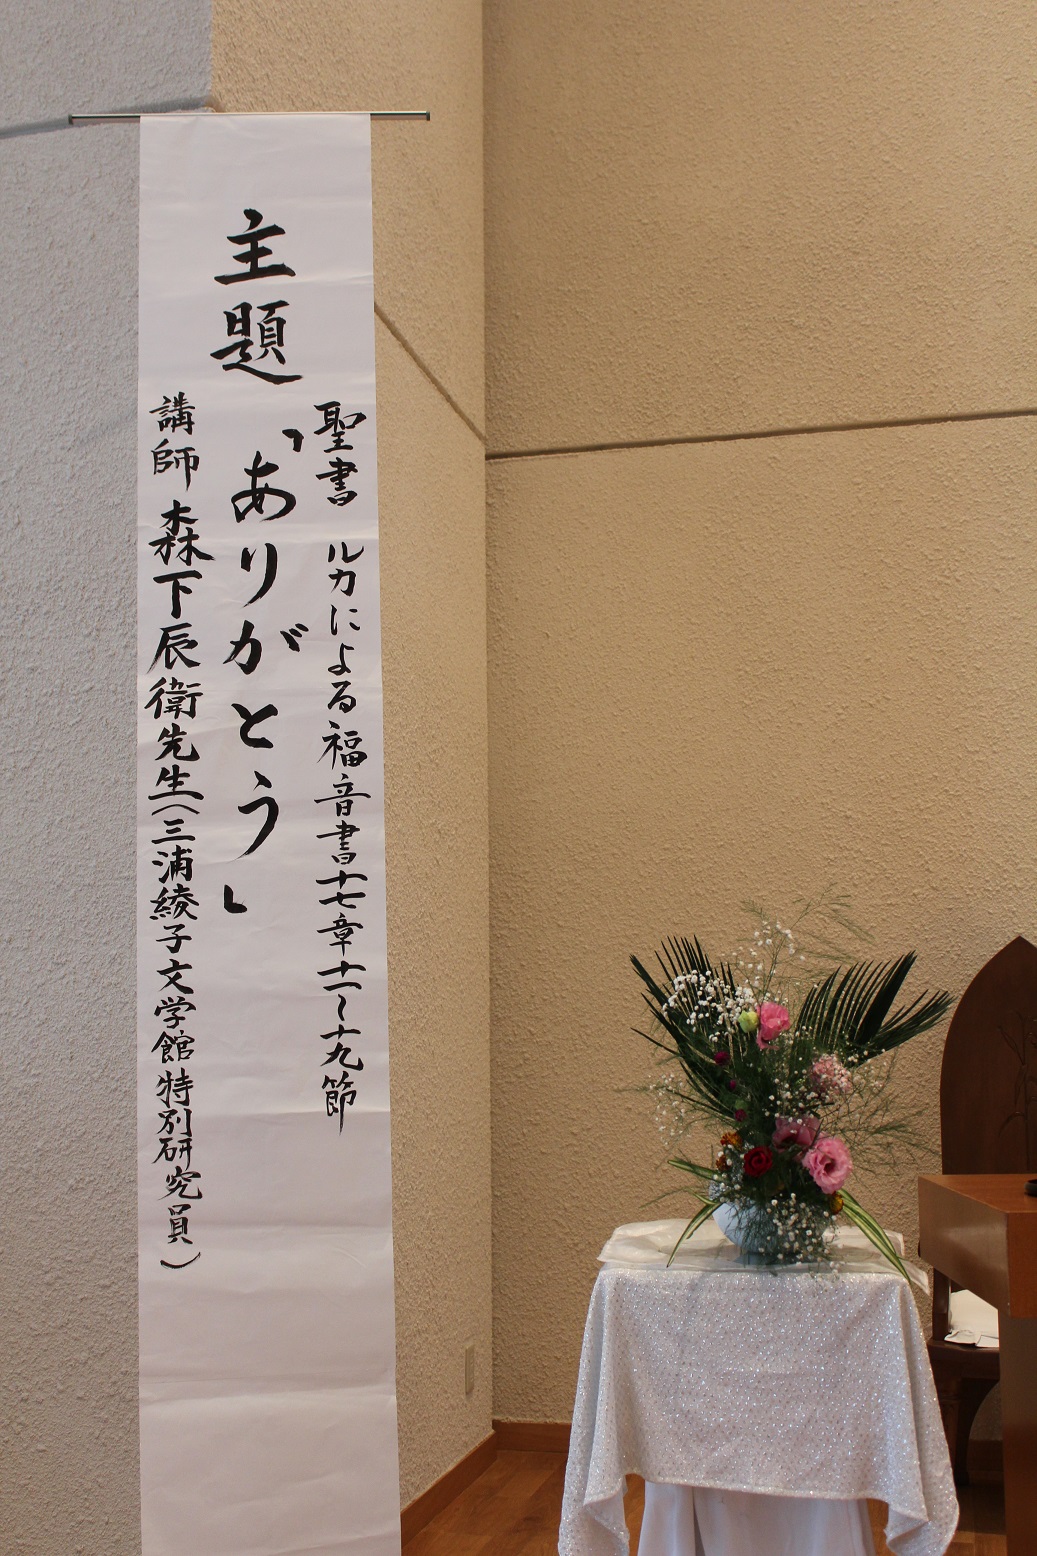 聖書 ルカによる福音書十七章十一〜十九節
主題「ありがとう」
講師 森下辰衛先生(三浦綾子文学館特別研究員)